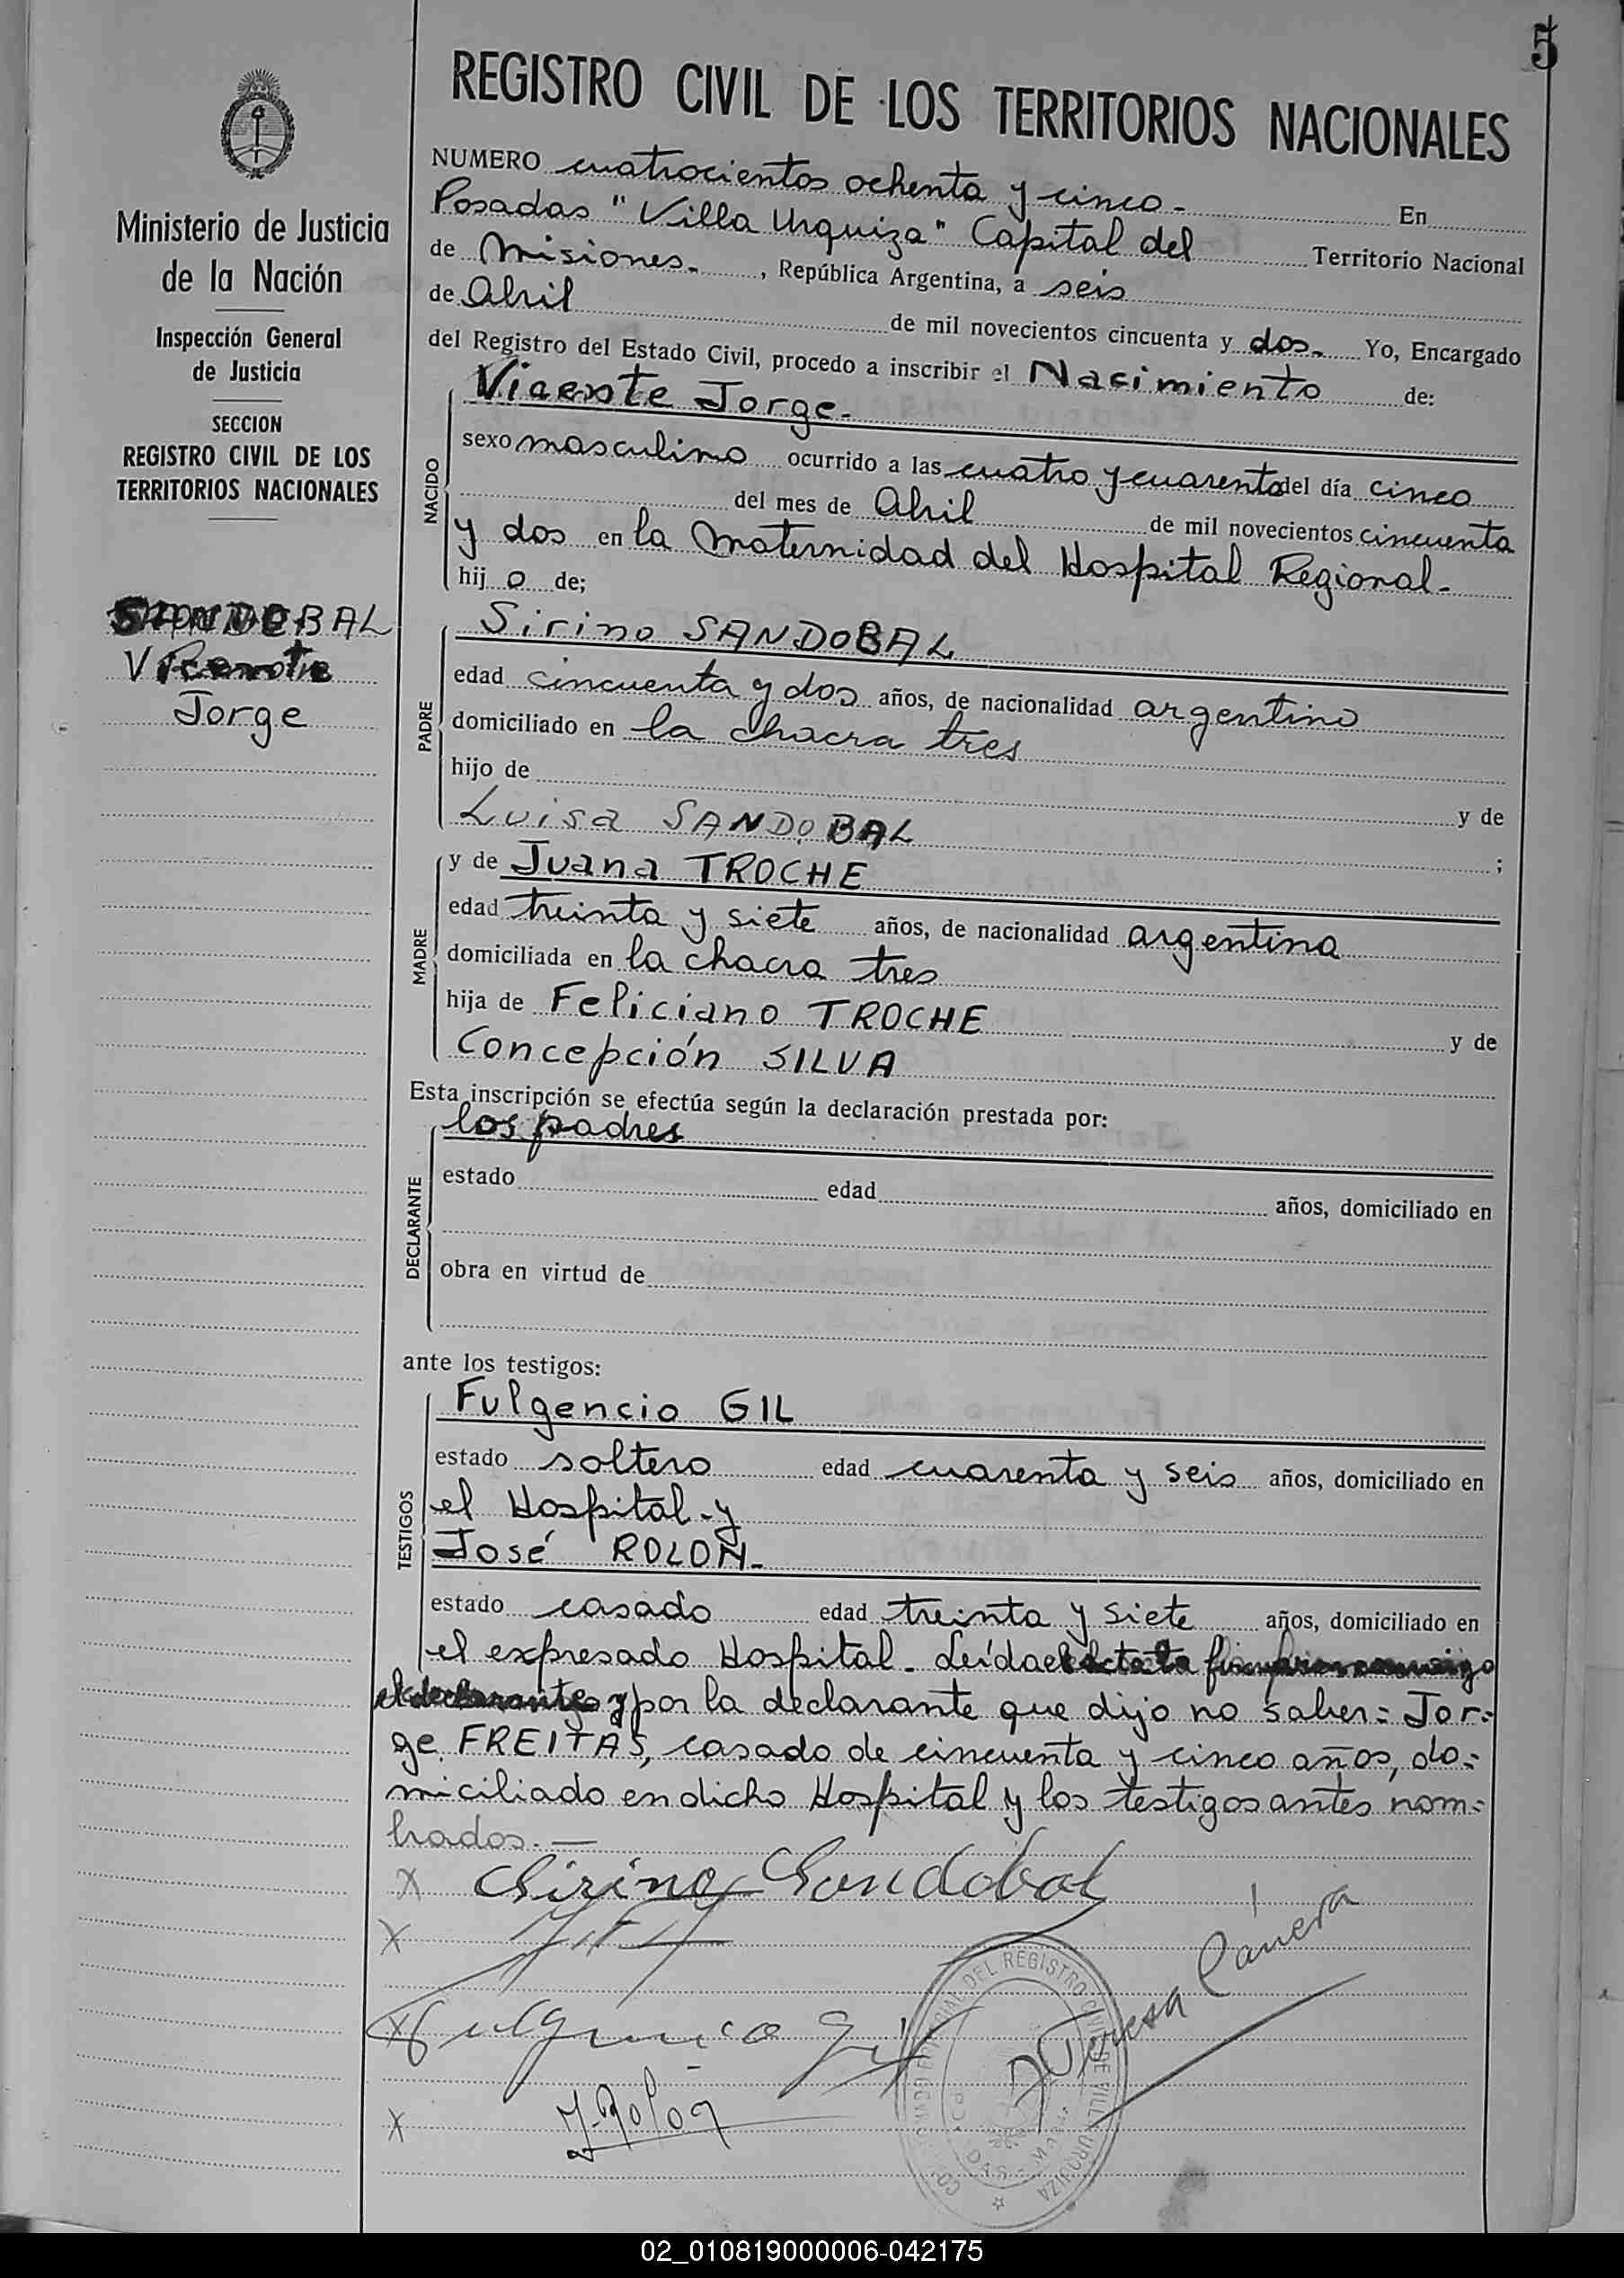 5
REGISTRO CIVIL DE LOS TERRITORIOS NACIONALES
Ministerio de Justicia
de la Nación
Inspección General
de Justicia
SECCION
REGISTRO CIVIL DE LOS
TERRITORIOS NACIONALES
SANDOBAL
Vicente
Jorge
NUMERO cuatrocientos ochenta y cinco - En
Posadas "Villa Urquiza" Capital del Territorio Nacional
de Misiones - , República Argentina, a seis
de Abril de mil novecientos cincuenta y dos - Yo, Encargado
del Registro del Estado Civil, procedo a inscribir el Nacimiento de:
Vicente Jorge -
NACIDO
sexo masculino ocurrido a las cuatro y cuarenta del día cinco
del mes de Abril de mil novecientos cincuenta
y dos en la Maternidad del Hospital Regional -
hij o de;
Sirino SANDOBAL
PADRE
edad cincuenta y dos años, de nacionalidad argentino
domiciliado en la chacra tres
hijo de y de
Luisa SANDOBAL ;
y de Juana TROCHE
MADRE
edad treinta y siete años, de nacionalidad argentina
domiciliada en la chacra tres
hija de Feliciano TROCHE y de
Concepción SILVA
Esta inscripción se efectúa según la declaración prestada por:
los padres
DECLARANTE
estado edad años, domiciliado en
obra en virtud de
ante los testigos:
Fulgencio GIL
TESTIGOS
estado soltero edad cuarenta y seis años, domiciliado en
el Hospital - y
José ROLON -
estado casado edad treinta y siete años, domiciliado en
el expresado Hospital - Leída el acta la
y por la declarante que dijo no saber = Jor=
ge FREITAS, casado de cincuenta y cinco años, do=
miciliado en dicho Hospital y los testigos antes nom=
brados. —
x Sirino Sandobal
x
x Fulgencio Gil
x J. Rolón
Teresa
DEL REGISTRO CIVIL DE VILLA URQUIZA
02_010819000006-042175